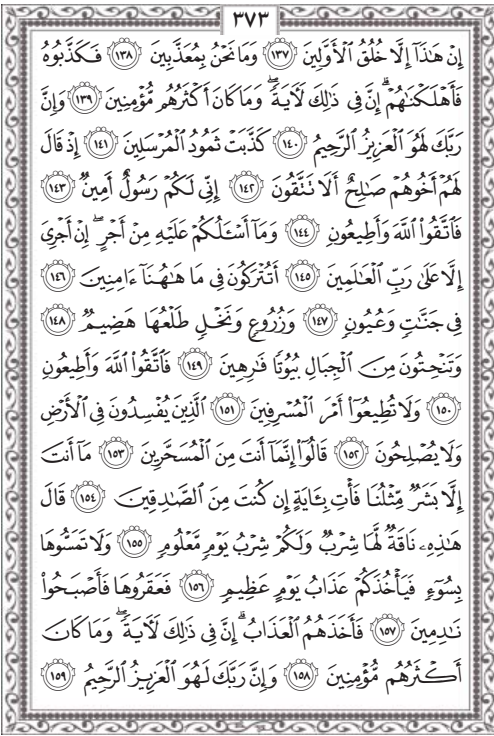 ٣٧٣
إِنْ هَٰذَآ إِلَّا خُلُقُ ٱلْأَوَّلِينَ ١٣٧ وَمَا نَحْنُ بِمُعَذَّبِينَ ١٣٨ فَكَذَّبُوهُ
فَأَهْلَكْنَٰهُمْ ۗ إِنَّ فِى ذَٰلِكَ لَءَايَةً ۖ وَمَا كَانَ أَكْثَرُهُم مُّؤْمِنِينَ ١٣٩ وَإِنَّ
رَبَّكَ لَهُوَ ٱلْعَزِيزُ ٱلرَّحِيمُ ١٤٠ كَذَّبَتْ ثَمُودُ ٱلْمُرْسَلِينَ ١٤١ إِذْ قَالَ
لَهُمْ أَخُوهُمْ صَٰلِحٌ أَلَا تَتَّقُونَ ١٤٢ إِنِّى لَكُمْ رَسُولٌ أَمِينٌ ١٤٣
فَٱتَّقُوا۟ ٱللَّهَ وَأَطِيعُونِ ١٤٤ وَمَآ أَسْـَٔلُكُمْ عَلَيْهِ مِنْ أَجْرٍ ۖ إِنْ أَجْرِىَ
إِلَّا عَلَىٰ رَبِّ ٱلْعَٰلَمِينَ ١٤٥ أَتُتْرَكُونَ فِى مَا هَٰهُنَآ ءَامِنِينَ ١٤٦
فِى جَنَّٰتٍ وَعُيُونٍ ١٤٧ وَزُرُوعٍ وَنَخْلٍ طَلْعُهَا هَضِيمٌ ١٤٨
وَتَنْحِتُونَ مِنَ ٱلْجِبَالِ بُيُوتًا فَٰرِهِينَ ١٤٩ فَٱتَّقُوا۟ ٱللَّهَ وَأَطِيعُونِ
١٥٠ وَلَا تُطِيعُوٓا۟ أَمْرَ ٱلْمُسْرِفِينَ ١٥١ ٱلَّذِينَ يُفْسِدُونَ فِى ٱلْأَرْضِ
وَلَا يُصْلِحُونَ ١٥٢ قَالُوٓا۟ إِنَّمَآ أَنتَ مِنَ ٱلْمُسَحَّرِينَ ١٥٣ مَآ أَنتَ
إِلَّا بَشَرٌ مِّثْلُنَا فَأْتِ بِـَٔايَةٍ إِن كُنتَ مِنَ ٱلصَّٰدِقِينَ ١٥٤ قَالَ
هَٰذِهِۦ نَاقَةٌ لَّهَا شِرْبٌ وَلَكُمْ شِرْبُ يَوْمٍ مَّعْلُومٍ ١٥٥ وَلَا تَمَسُّوهَا
بِسُوٓءٍ فَيَأْخُذَكُمْ عَذَابُ يَوْمٍ عَظِيمٍ ١٥٦ فَعَقَرُوهَا فَأَصْبَحُوا۟
نَٰدِمِينَ ١٥٧ فَأَخَذَهُمُ ٱلْعَذَابُ ۗ إِنَّ فِى ذَٰلِكَ لَءَايَةً ۖ وَمَا كَانَ
أَكْثَرُهُم مُّؤْمِنِينَ ١٥٨ وَإِنَّ رَبَّكَ لَهُوَ ٱلْعَزِيزُ ٱلرَّحِيمُ ١٥٩